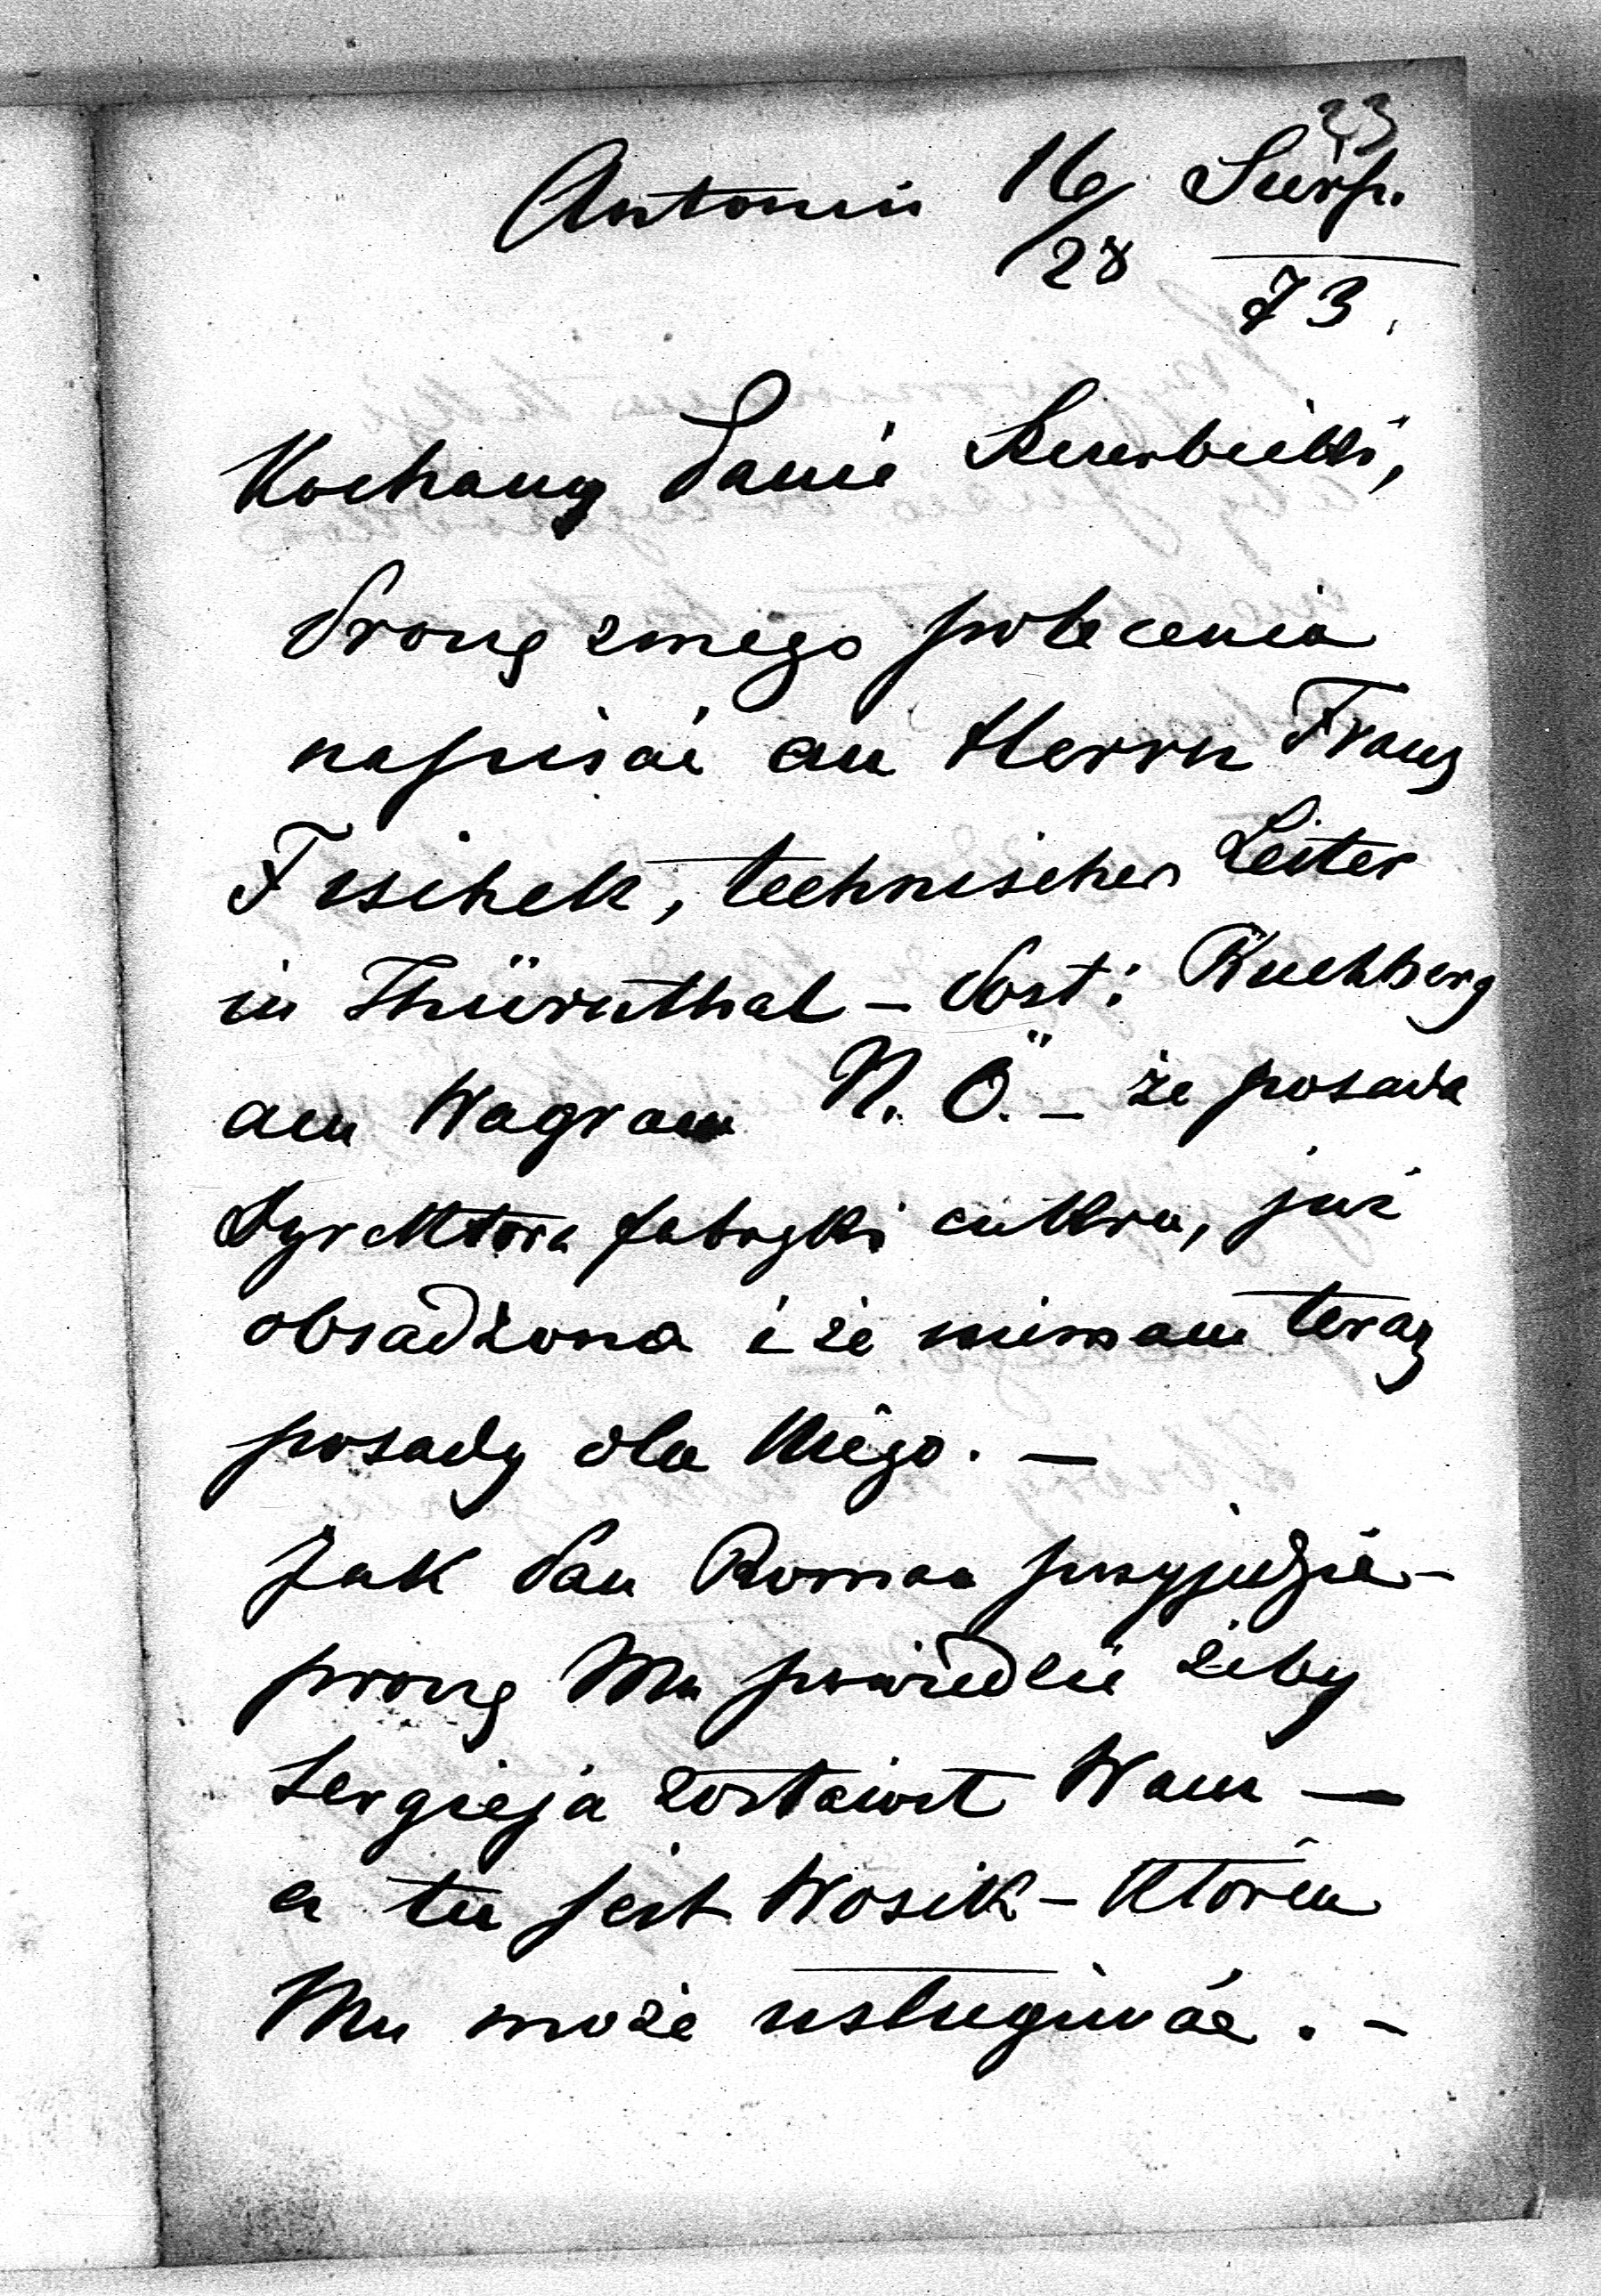 23
Antonin 16/28 Sierp.
73.
Kochany Panie Skierbicki,
Proszę z mego polecenia
napisać an Herrn Franz
Fischek, technischer Leiter
in Thürnthal – Post: Kirchberg
am Wagram N. Ö. – że posada
Dyrektora fabryki cukru, już
obsadzona i że niemam teraz
posady dla Niego. –
Jak Pan Roman przyjedzie –
proszę Mu powiedzieć żeby
Sergieja zostawił Wam –
a tu jest Wosik – który
Mu może usługiwać. –